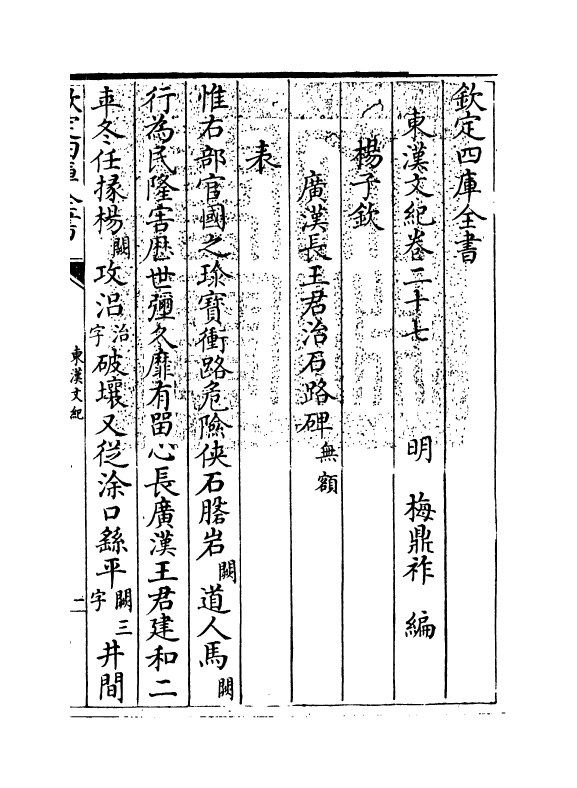 欽定四庫全書
東漢文紀卷二十七 明 梅鼎祚 編
楊子欽
廣漢長王君治石路碑無額
表
惟右部官國之珍寶衝路危險侠石磐岩闕道人馬闕
行為民隆害厯世彌久靡有留心長廣漢王君建和二
年冬任掾楊闕攻治治字破壞又從涂口繇平闕三字井間
欽定四庫全書
東漢文紀
二